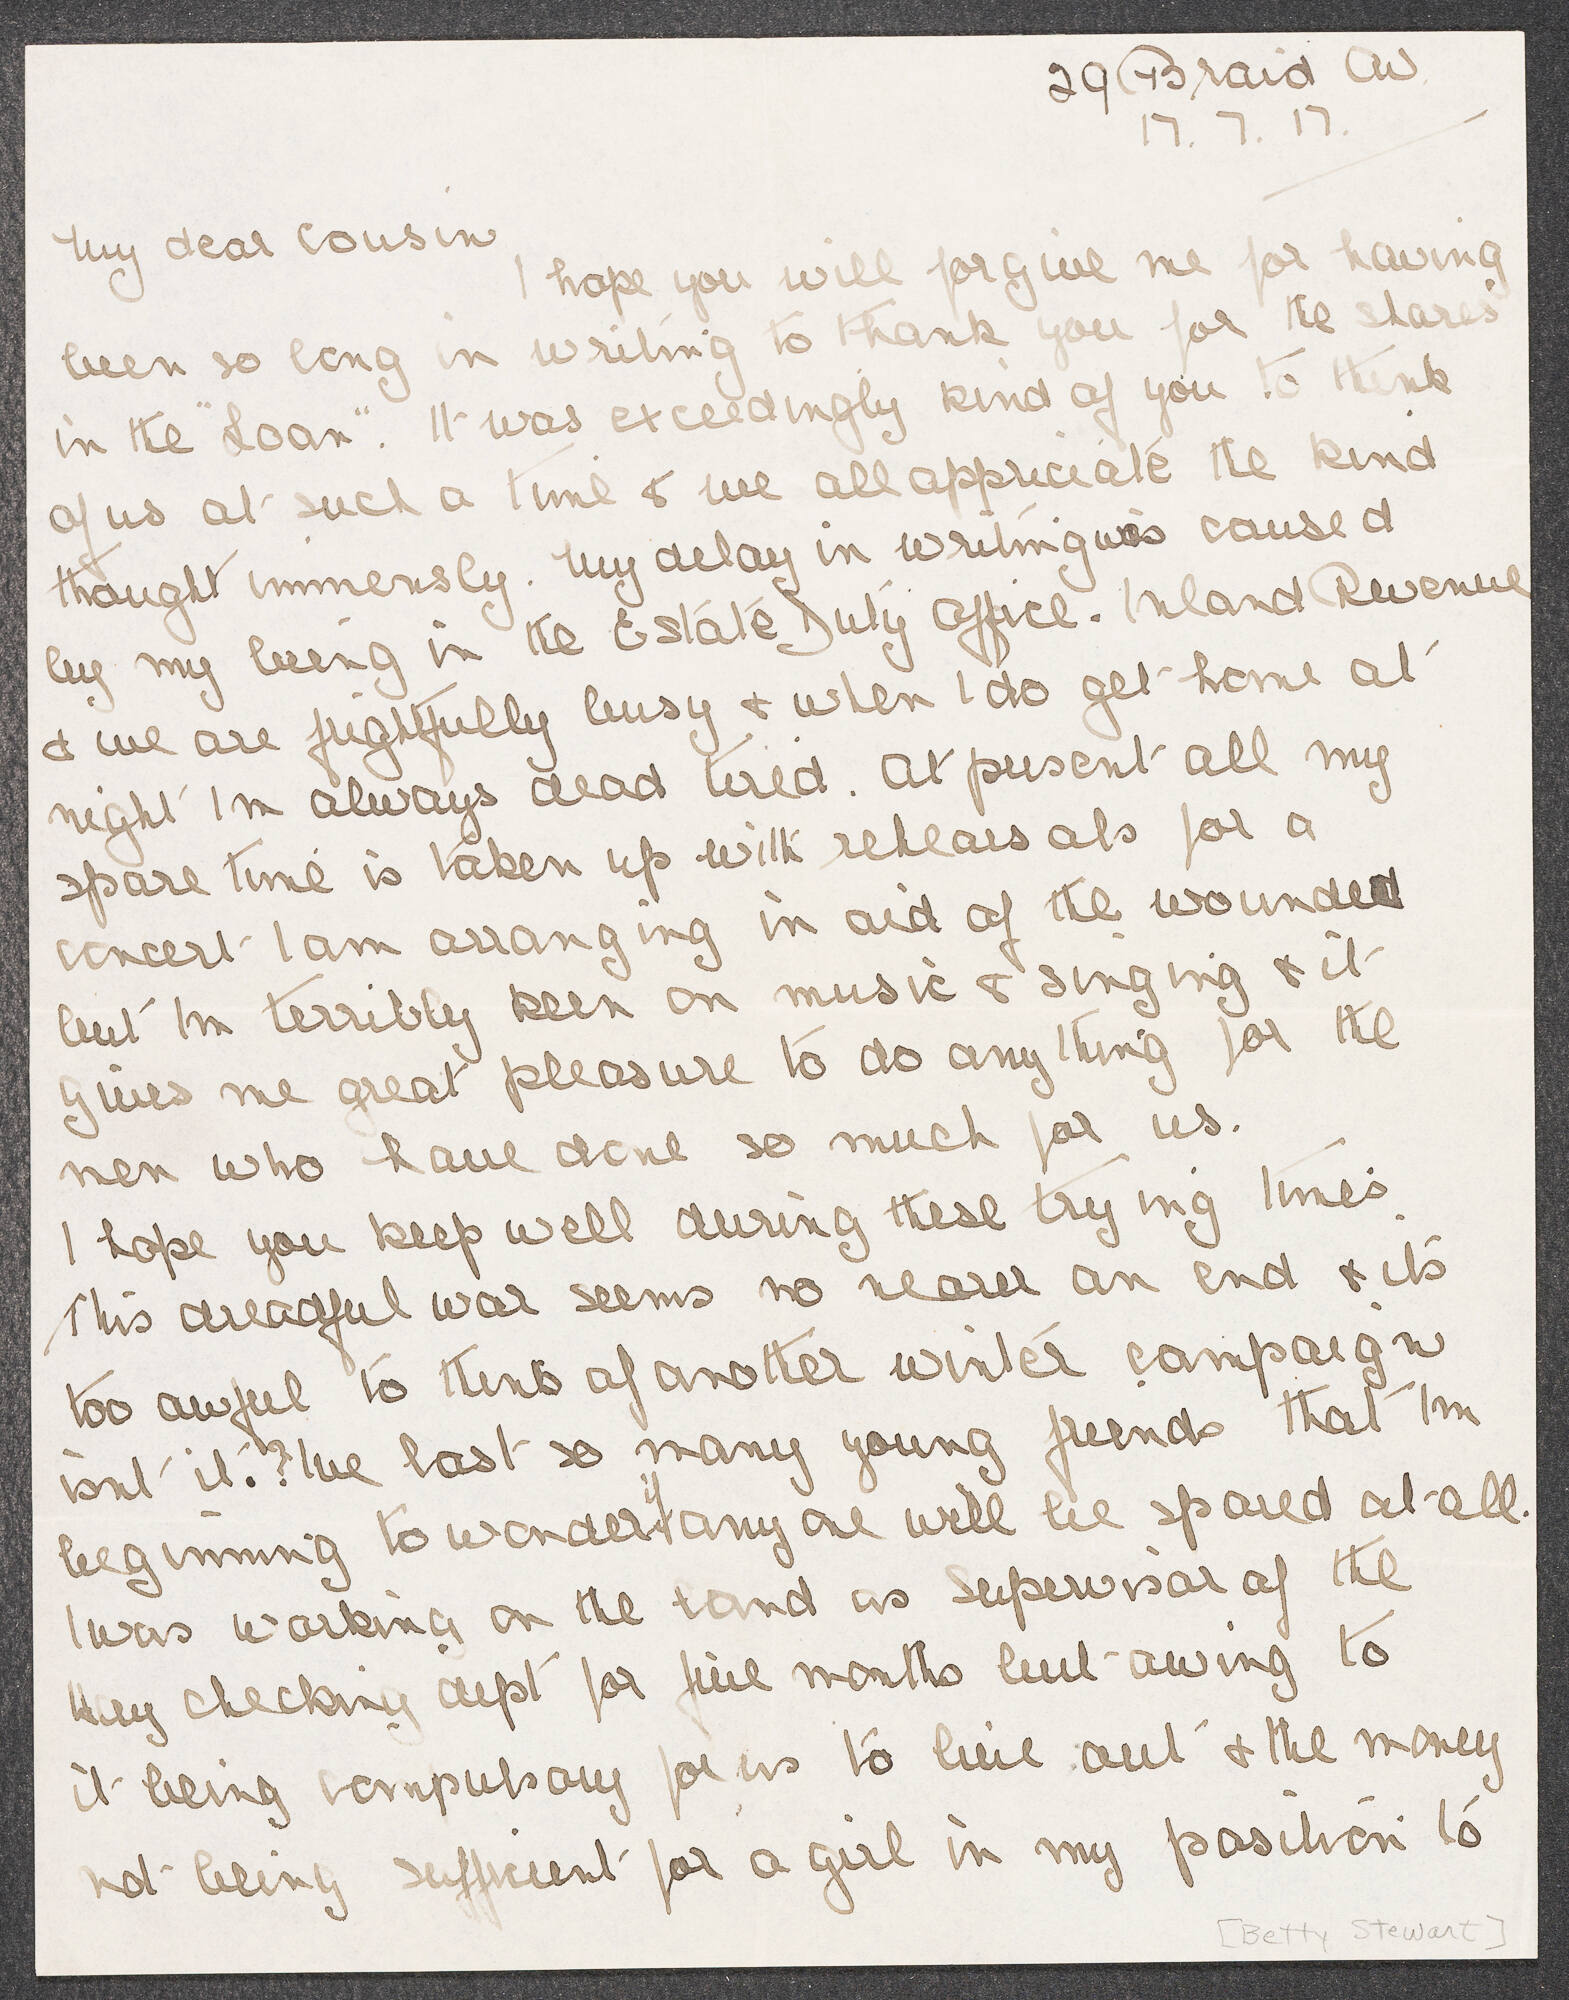 29 Braid Av
17. 7. 17.
My dear Cousin
I hope you will forgive me for having
been so long in writing to thank you for the shares
in the "Loan". It was exceedingly kind of you to think
of us at such a time & we all appriciate the kind
thought immensly. My delay in writing was caused
by my being in the Estate Duty Office. Inland Revenue
& we are frightfully busy & when I do get home at
night Im always dead tired. At present all my
spare time is taken up with rehearsals for a
concert I am arranging in aid of the wounded
but Im terribly keen on music & singing & it
gives me great pleasure to do anything for the
men who have done so much for us.
I hope you keep well during these trying times.
This dreadful war seems no nearer an end & its
too awful to think of another winter campaign
isnt it.? Ive lost so many young friends that Im
beginning to wonder if anyone will be spared at all.
I was working on the land as Supervisor of the
Hay checking dept for five months but owing to
it being compulsory for us to live out & the money
not being sufficient for a girl in my position to
[Betty Stewart]